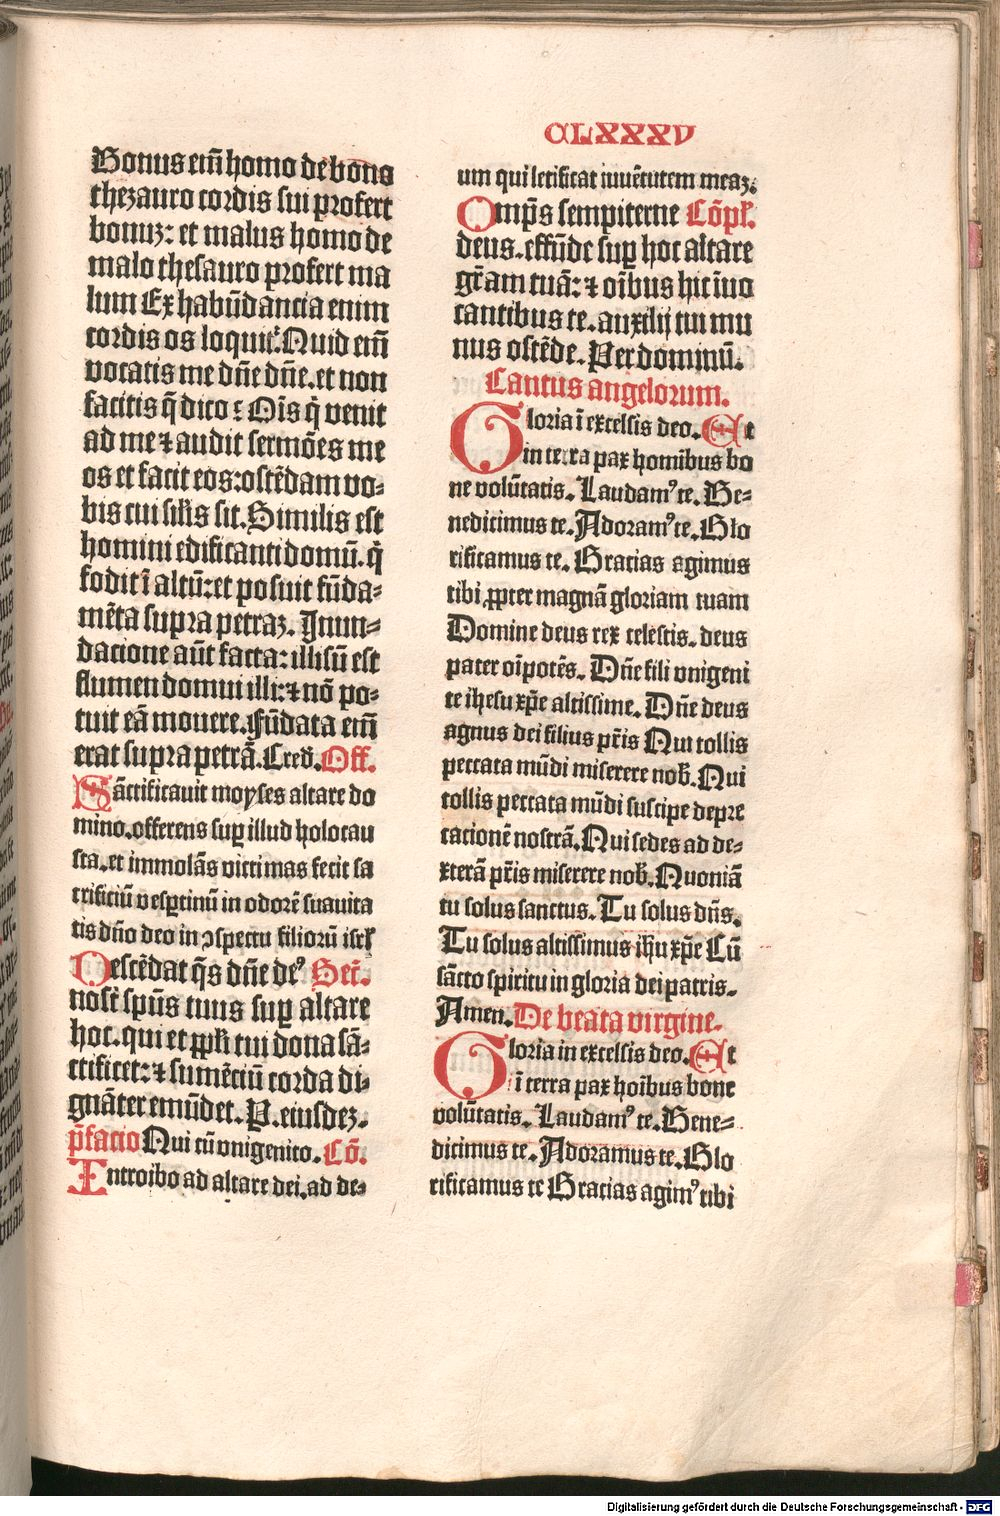 CLXXXV
Bonus em̄ homo de bono
thezauro cordis sui profert
bonuz: et malus homo de
malo thesauro profert ma
lum Ex habūdancia enim
cordis os loquit᷑. Quid em̄
vocatis me dn̄e dn̄e. et non
facitis q̄ dico? Oīs q̇ venit
ad me ⁊ audit sermōes me
os et facit eos: ostēdam vo⸗
bis cui sil̄is sit. Similis est
homini edificanti domū. q̇
fodit ī altū: et posuit fūda⸗
mēta supra petraz. Inun⸗
dacione aūt facta: illisū est
flumen domui illi: ⁊ nō po⸗
tuit eā mouere. fūdata em̄
erat supra petrā. Cred̄. Off.
Sāctificauit moyses altare do
mino. offerens sup̱ illud holocau
sta. et immolās victimas fecit sa
crificiū vesp̱tinū in odorē suauita
tis dn̄o deo in ꝯspectu filiorū isrl̄
Descēdat q̄s dn̄e deꝰ Secr̄.
nost̄ sp̄us tuus sup̱ altare
hoc. qui et pp̄li tui dona sā⸗
ctificet: ⁊ sumēciū corda di⸗
gnāter emūdet. P. eiusdez.
p̄facio Qui cū vnigenito. Cō.
Introibo ad altare dei. ad de⸗
um qui letificat iuuētutem meaz.
Omp̄s sempiterne Cōpl̄.
deus. effūde sup̱ hoc altare
gr̄am tuā: ⁊ oībus hic īuo
cantibus te. auxilij tui mu
nus ostēde. Per dominū.
Cantus angelorum.
Gloria ī excelsis deo. Et
in terra pax homībus bo
ne volūtatis. Laudamꝰ te. Be⸗
nedicimus te. Adoramꝰ te. Glo
rificamus te. Gracias agimus
tibi ꝓpter magnā gloriam tuam
Domine deus rex celestis. deus
pater oīpotēs. Dn̄e fili vnigeni
te ihesu xp̄e altissime. Dn̄e deus
agnus dei filius pr̄is Qui tollis
peccata mūdi miserere nob̄. Qui
tollis peccata mūdi suscipe depre
cationē nostrā. Qui sedes ad de⸗
xterā pr̄is miserere nob̄. Quoniā
tu solus sanctus. Tu solus dn̄s.
Tu solus altissimus ih̄u xp̄e Cū
sācto spiritu in gloria dei patris.
Amen. De beata virgine.
Gloria in excelsis deo. Et
ī terra pax hoībus bone
volūtatis. Laudamꝰ te. Bene⸗
dicimus te. Adoramus te. Glo
rificamus te Gracias agimꝰ tibi
Digitalisierung gefördert durch die Deutsche Forschungsgemeinschaft - DFG